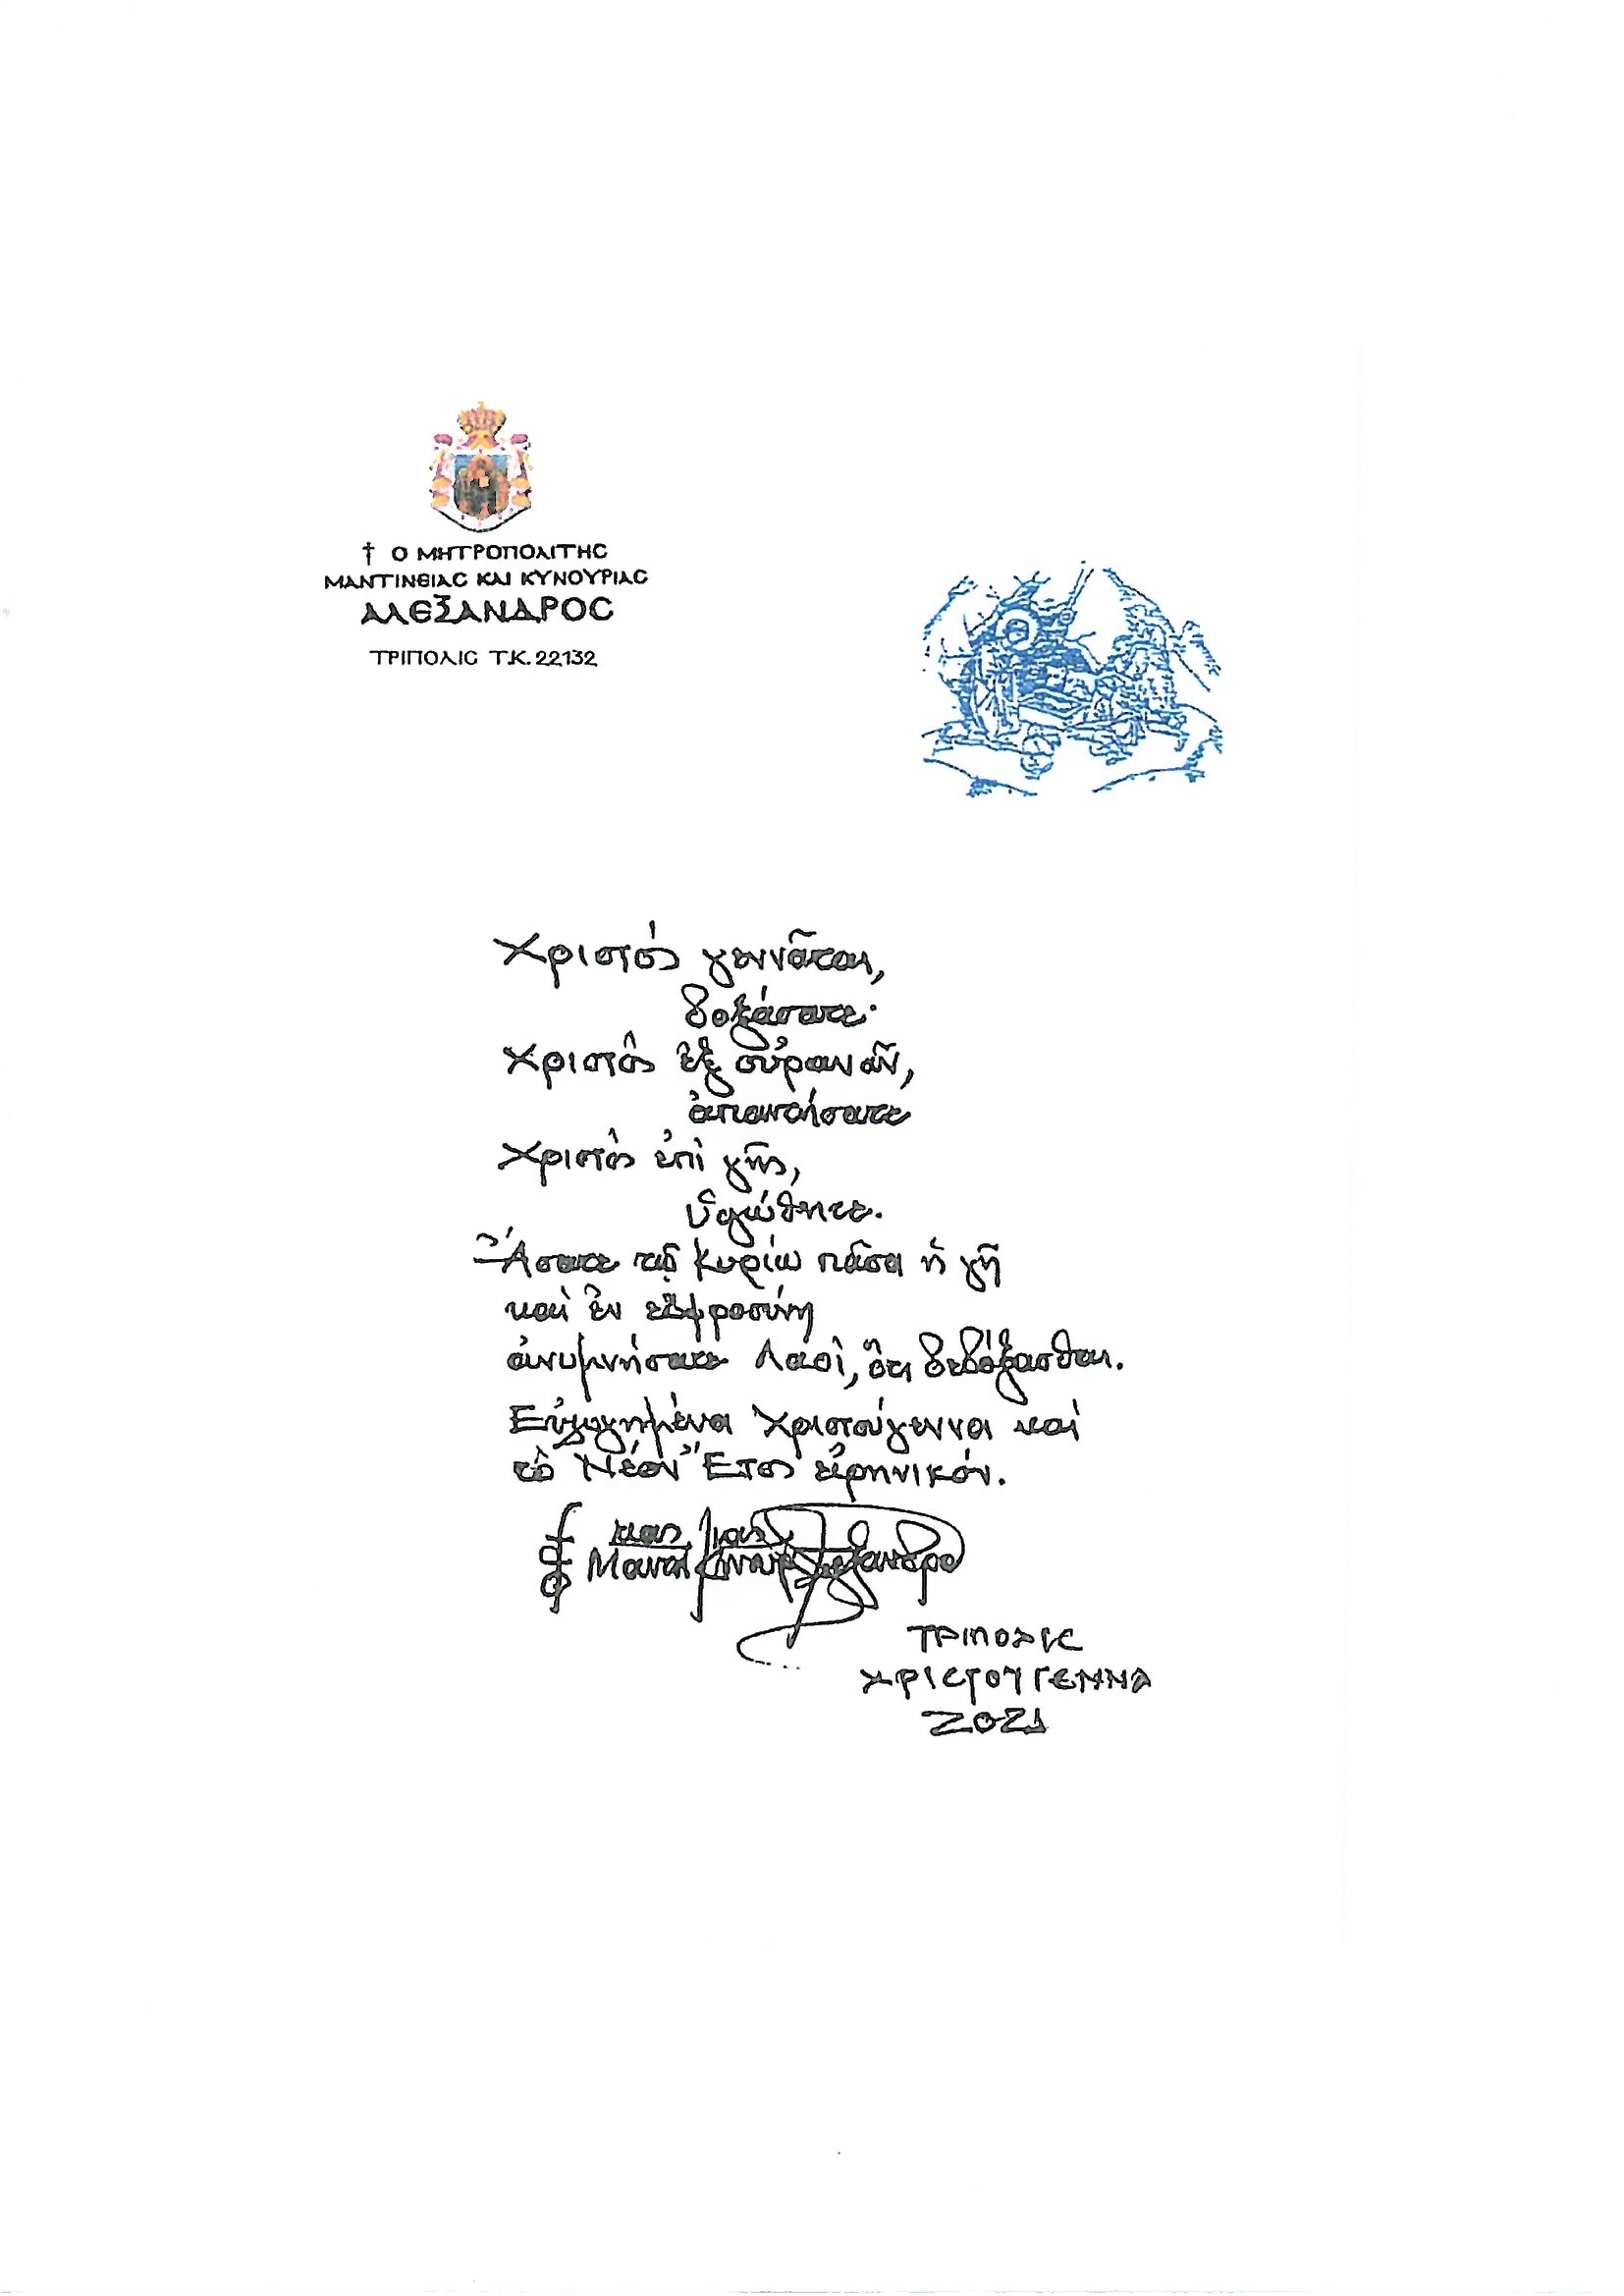 † Ο ΜΗΤΡΟΠΟΛΙΤΗΣ
ΜΑΝΤΙΝΕΙΑΣ ΚΑΙ ΚΥΝΟΥΡΙΑΣ
ΑΛΕΞΑΝΔΡΟΣ
ΤΡΙΠΟΛΙΣ Τ.Κ. 22132
Χριστός γεννᾶται,
δοξάσατε·
Χριστὸς ἐξ οὐρανῶν,
ἀπαντήσατε
Χριστὸς ἐπὶ γῆς,
ὑψώθητε.
ᾌσατε τῷ Κυρίῳ πᾶσα ἡ γῆ
καὶ ἐν εὐφροσύνῃ
ἀνυμνήσατε Λαοὶ, ὅτι δεδόξασθαι.
Εὐλογημένα Χριστούγεννα καὶ
τὸ Νέον Ἔτος εἰρηνικόν.
ΤΡΙΠΟΛΙΣ
ΧΡΙΣΤΟΥΓΕΝΝΑ
2021